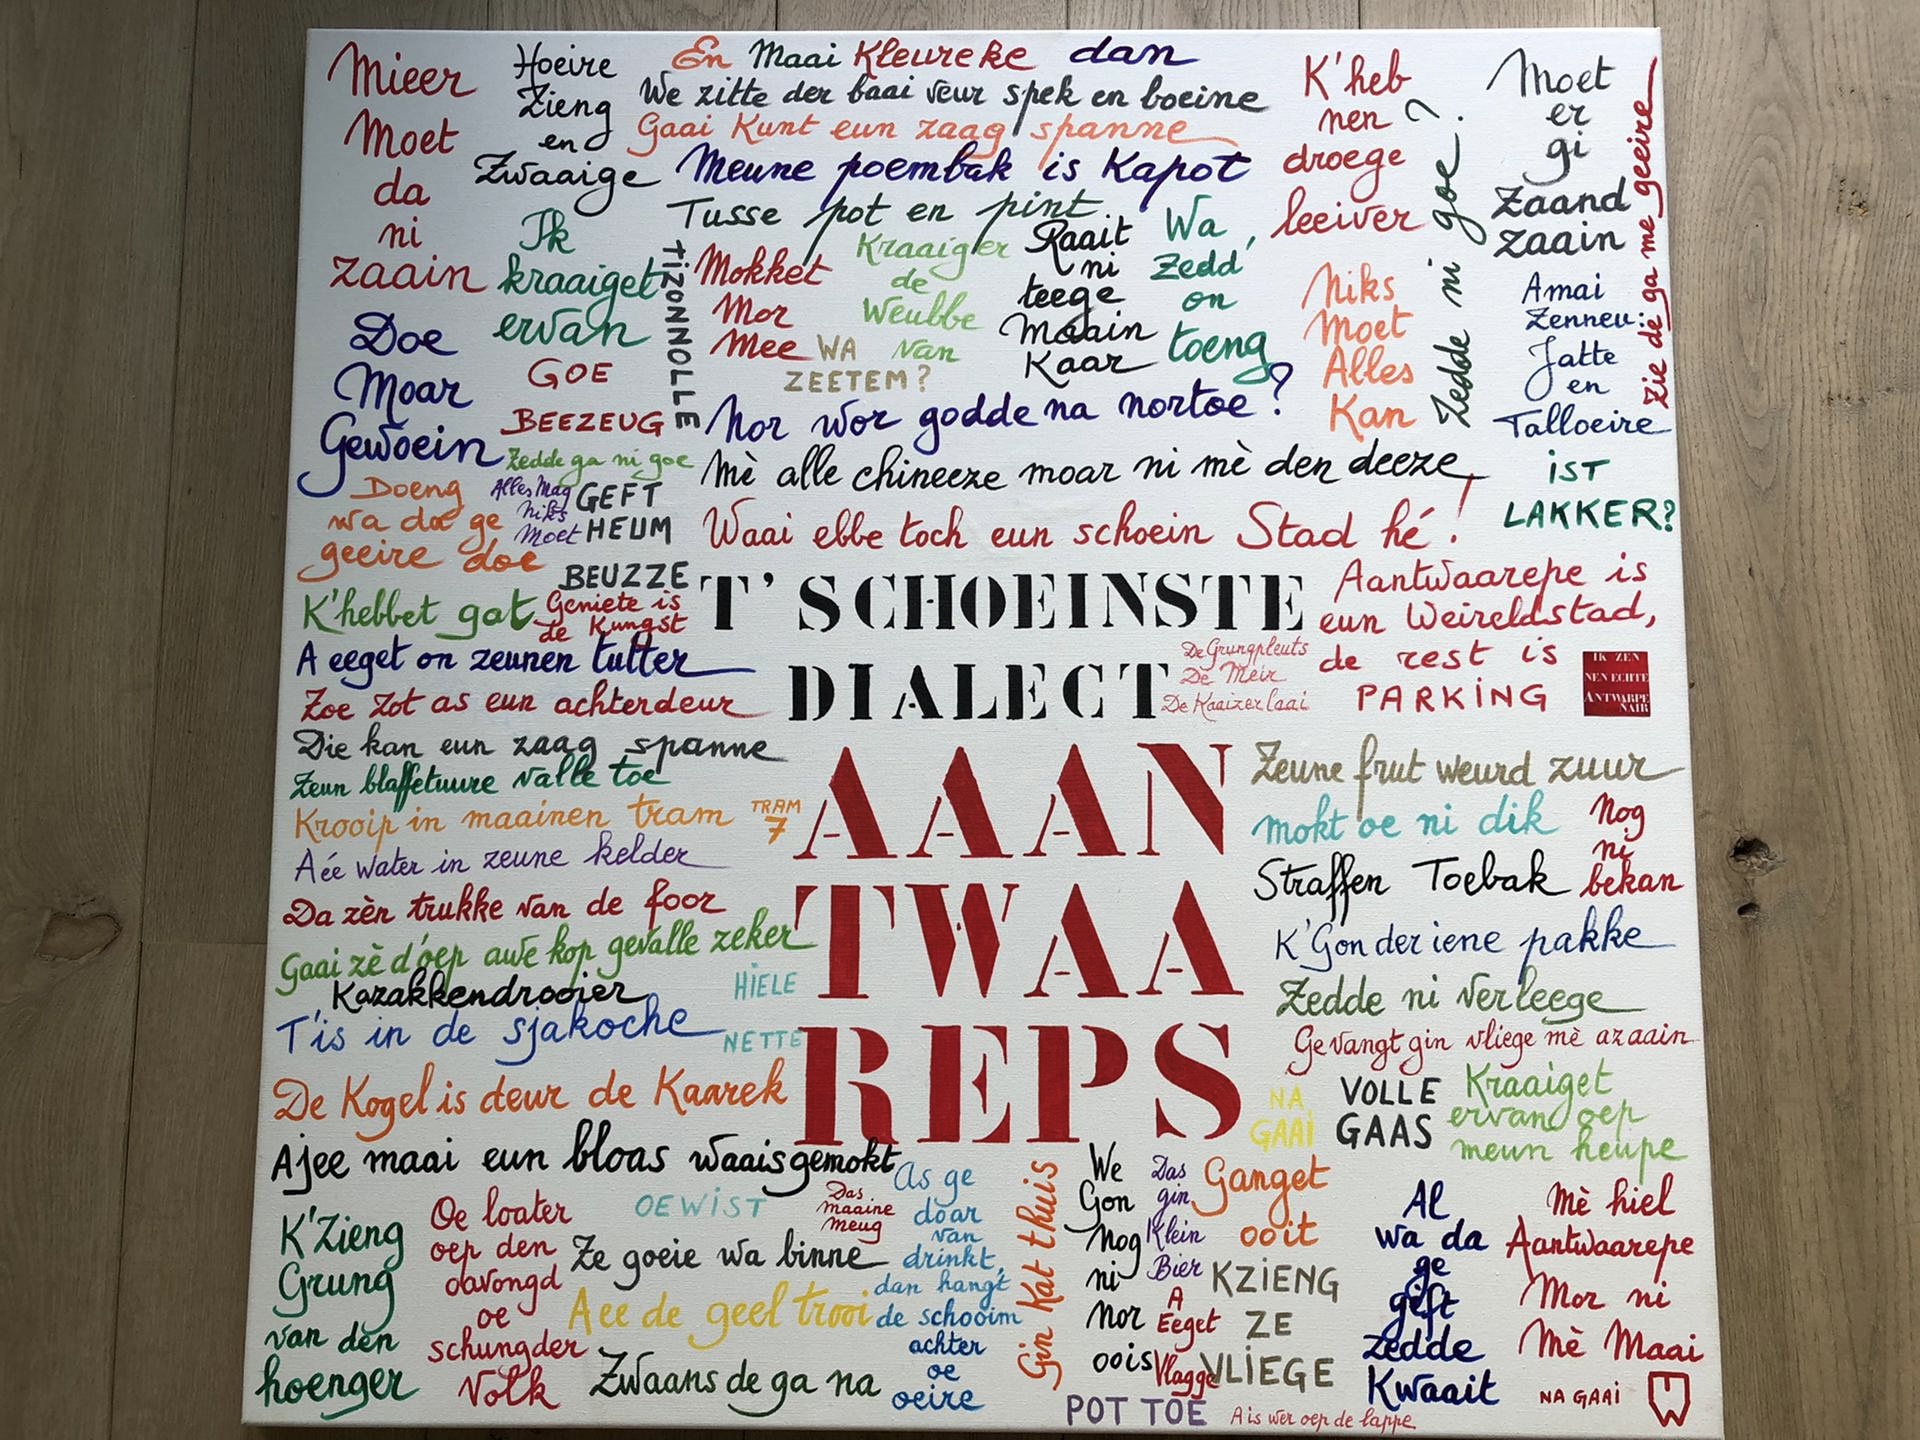 Mieer
Moet
da
ni
zaain
Hoeire
Zieng
en
Zwaaige
En Maai Kleureke dan
We zitte der baai veur spek en boeine
Gaai Kunt eun zaag spanne
Meune poembak is Kapot
Tusse pot en pint
K'heb
nen
droege
leeiver
Zedde ni goe?
Moet
er
gi
Zaand
zaain
Zie de ga me geeire
Ik
kraaiget
ervan
TIZONNOLLE
Mokket
Mor
Mee
Kraaiger
de
Weubbe
van
Raait
ni
teege
maain
Kaar
Wa
Zedd'
on
toeng
?
Niks
Moet
Alles
Kan
Amai
Zenneu:
Jatte
en
Talloeire
Doe
Moar
Gewoein
GOE
BEEZEUG
WA
ZEETEM?
Nor wor godde na nortoe?
Zedde ga ni goe
Mè alle chineeze moar ni mè den deeze
iST
LAKKER?
Doeng
wa da ge
geeire doe
Alles Mag
Niks
Moet
GEFT
HEUM
BEUZZE
Waai ebbe toch eun schoein Stad hé!
K'hebbet gat
Geniete is
de Kungst
T'SCHOEINSTE
DIALECT
AAAN
TWAA
REPS
Aantwaarepe is
eun Weireldstad,
de rest is
PARKiNG
De Grungpleuts
De Meir
De Kaaizerlaai
IK ZEN
NEN ECHTE
ANTWARPE
NAIR
A eeget on zeunen tutter
Zoe zot as eun achterdeur
Die kan eun zaag spanne
Zeun blaffetuure valle toe
Krooip in maainen tram
TRAM
7
Aée water in zeune kelder
Da zèn trukke van de foor
Gaai zè d'óep awe kop gevalle zeker
Kazakkendrooier
HiELE
T'is in de sjakoche
NETTE
De Kogel is deur de Kaarek
Ajee maai eun bloas waaisgemokt
Zeune frut weurd zuur
mokt oe ni dik
Nog
ni
bekan
Straffen Toebak
K'Gon der iene pakke
Zedde ni verleege
Ge vangt gin vliege mè azaain
NA
GAAi
VOLLE
GAAS
Kraaiget
ervan oep
meun heupe
K'Zieng
Grung
van den
hoenger
Oe loater
oep den
oavongd
oe
schungder
Volk
OEWiST
Das
maaine
meug
Ze goeie wa binne
Aee de geel trooi
Zwaans de ga na
As ge
doar
van
drinkt,
dan hangt
de schooim
achter
oe
oeire
Gin Kat thuis
We
Gon
Nog
ni
Nor
oois
Das
gin
Klein
Bier
A
Eeget
Vlagge
Ganget
ooit
KZiENG
ZE
VLiEGE
Al
wa da
ge
gift
Zedde
Kwaait
Mè hiel
Aantwaarepe
Mor ni
Mè Maai
POT TOE
A is wer oep de lappe
NA GAAi